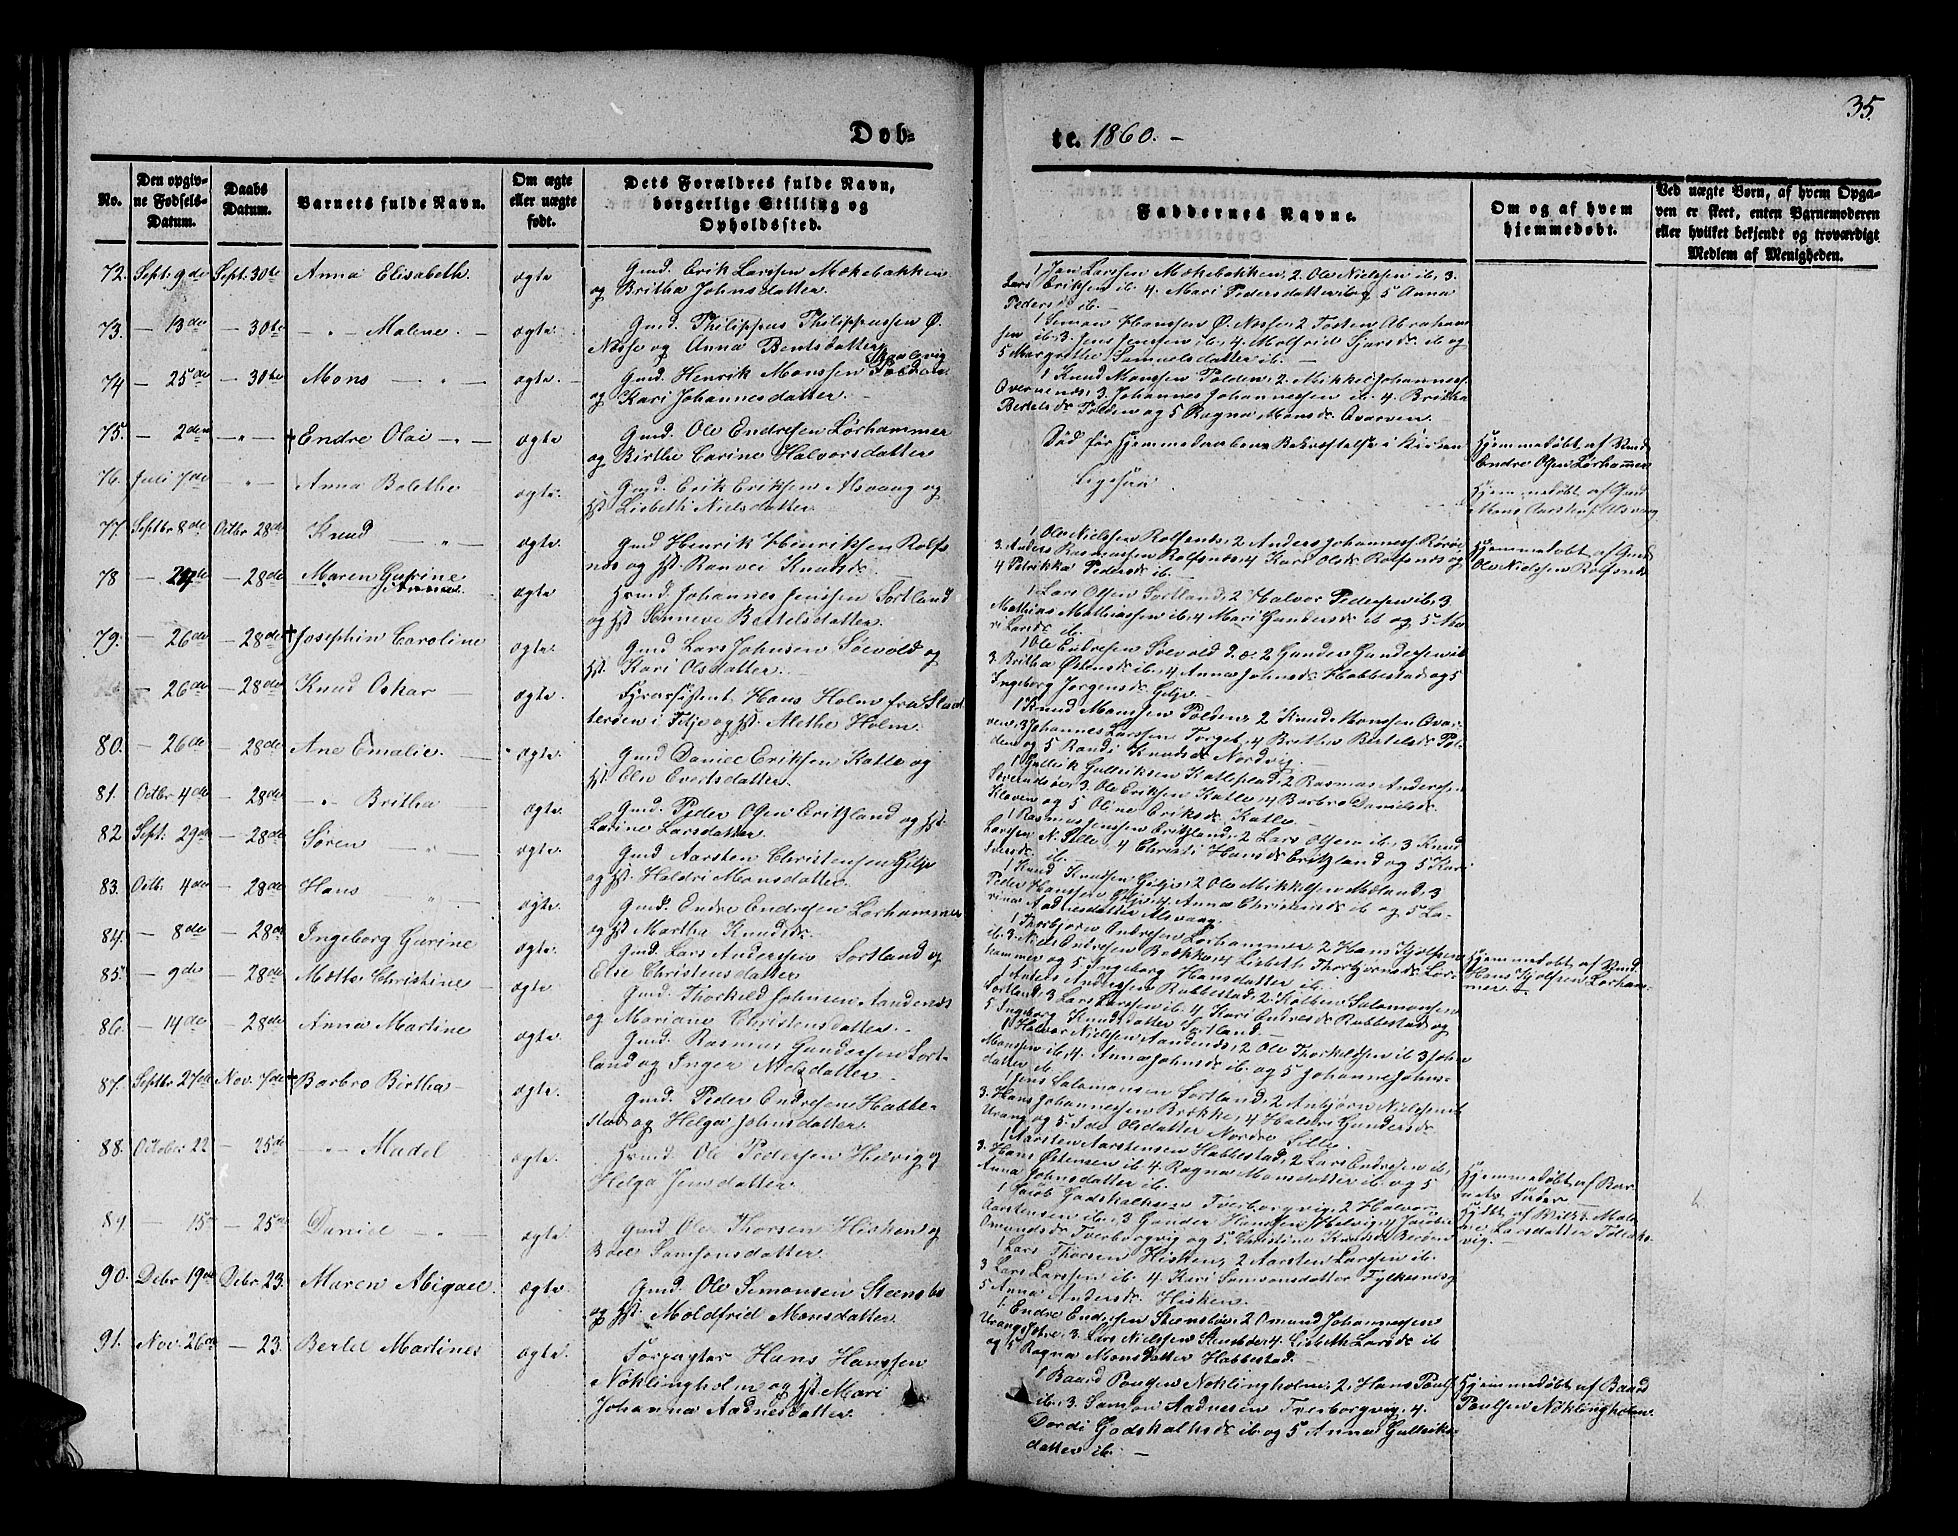 35.
Døb-
te. 1860. -
No.
Den opgiv-
ne Fødsels-
Datum.
Daabs
Datum.
Barnets fulde Navn.
Om ægte
eller uægte
født.
Dets Forældres fulde Navn,
borgerlige Stilling og
Opholdssted.
Faddernes Navne.
Om og af hvem
hjemmedøbt.
Ved uægte Børn, af hvem Opga-
ven er skeet, enten Barnemoderen
eller hvilket bekjendt og troværdigt
Medlem af Menigheden.
72. Sept: 9de Sept: 30te Anna Elisabeth ægte
Gmd. Erik Larssen Mækebakken
og Britha Johnsdatter.
1 Jon Larssen Mækebakken, 2 Ole Nielsen ib, 3.
Lars Eriksen ib 4. Mari Pedersdatter ib og 5 Anna
Peders ib.
73. - 13de - 30te - " - Malene. - ægte.
Gmd. Philippus Philippussen Ø.
Næsse og Anna Bentsdatter
1 Simon Hanssen Ø. Næsse, 2 Tosten Abraham
sen ib, 3. Jens Jenssen ib, 4. Molfrid ib og
5 Margrethe Samuelsdatter ib. -
74 - 25de - 30te Mons - " - ægte.
Gmd. Henrik Monssen Tolden
og Kari Johannesdatter. -
1 Knud Monssen Tolden, 2. Mikkel Johanness.
3 Johannes Johannessen ib. 4. Britha
Bertelsdr Tolden og 5 Ragna Monsdr
75. - 2den - " - † Endre Olai - " - ægte
Gmd. Ole Endresen Lørhammer
og Birthe Carine Halvorsdatter
Død før Hjemmedaabens Bekræftelse i Kirken
Hjemmedøbt af Gmd
Endre Olsen Lørhammer
76. Juli 7de - " - Anna Bolethe ægte.
Gmd. Erik Eriksen Alsvaag og
Hst Lisbeth Nielsdatter
Ligesaa
Hjemmedøbt af Gmd
77. Septbr 8de Octbr 28de Knud - " - ægte.
Gmd Henrik Henriksen Rolfs
nes og Hst. Ranvei Knudsdr.
1 Ole Nielsen Rolfsnes, 2 Anders Johanness
3. Anders Rasmussen Rolfsnes, 4 Kari Olsdr Rolfsnes og
4 Petrikka Pedersdr ib. -
Hjemmedøbt af Gmd
Ole Nielsen Rolfsnes
78 - 28de Maren Gurine ægte
Hmd. Johannes Jenssen Sortland
og Hst Synneve Bertelsdatter.
1 Lars Olsen Sortland, 2 Halvor Pedersen ib, 3
Mathias Mathiassen ib, 4 Mari Gundersdr ib og 5 Ma
ri Larsdr ib.
79. - 26de - 28de † Josephin Caroline ægte.
Gmd Lars Johnsen Søevold og
Hst. Kari Olsdatter. -
1 Ole Endresen Søevold 2 Gunder Gundersen ib
3. Britha Østensdr ib. 4 Anna Johnsdr Habbestad og 5
Ingeborg Jørgensdr Gilje. -
- 26de - 28de Knud Oskar - ægte.
Fyrassistent, Hans Holm fra Slaat
terøen i Fitje og Hst. Alethe Holm.
1 Knud Monssen Tolden, 2 Knud Monssen
3 Johannes Larssen Torget, 4 Brithe Bertelsdr Tol-
den og 5 Randi Knudsdr Nordvig. -
80. - 26de - 28de Ane Emalie. - ægte.
Gmd Daniel Eriksen Katle og
Hst. Ole Evertsdatter. -
1 Gullik Gulliksen Katleplad, 2 Rasmus Andersen
3. Ole Eriksen Katle, 4 Barbro Danielsdr
Klaven og 5 Oline Eriksdr Katle -
81. Octbr 4de - 28de - " - Britha - ægte.
Gmd. Peder Olsen Eritzland og Hst.
Larine Larsdatter.
1 Rasmus Jenssen Eritzland, 2 Lars Olsen ib, 3 Knud
Larssen N. Sille, 4 Christi Hansdr Eritzland og 5 Kari
ib.
82 Sept: 29de - 28de Søren - " - ægte.
Gmd Aarsten Christensen Gilje
og Hst. Haldri Monsdatter.
1 Knud Knudsen Gilje, 2 Ole Mikkelsen Midland, 3
Peder Hanssen Gilje, 4 Anna Christensdr ib og 5 La-
rine Aadnesdatter Alsvaag. -
83. Octbr. 4de - 28de Hans - " - ægte.
Gmd. Endre Endresen Lørhammer
og Hst Martha Knudsdr.
1 Thorbjørn Endresen Lørhammer, 2 Hans Kjølsen
ib. 3. Niels Endresen Brække, 4 Lisbeth Thorbjørnsdr Lør-
hammer og 5 Ingeborg Hansdatter ib.
Hjemmedøbt af Gmd.
Hans Kjølsen Lørham-
mer. -
84. - 8de - 28de Ingeborg Gurine ægte.
Gmd. Lars Andersen Sortland og
Else Christensdatter
1 Anders Andersen Rabbestad, 2. Kolben Salamonsen
Sortland, 3 Lars Larssen ib. 4 Kari Endresdr Rabbestad og
5 Ingeborg Knudsdatter Sortland.
85. - 9de - 28de Mette Christine - ægte.
Gmd. Thorkild Johnsen Aandenes
og Mariane Christensdatter. -
1 Halvor Nielsen Aandenes, 2 Ole Thorkildsen ib, 3 John
Monssen ib, 4. Anna Johnsdr ib. og 5 Johanne Johns-
datter ib.
86. - 14de - 28de Anna Martine ægte.
Gmd. Rasmus Gundersen Sort-
land og Inger Nielsdatter. -
1 Jens Salamonsen Sortland, 2 Anbjørn Nielsen ib
3. Hans Johannessen Brække, 4 Haldri Gundersdr
Urang og 5. Ida Olsdatter Nordre Sille. -
87. Septbr 27de Nov. 7de † Barbro Birtha - ægte.
Gmd. Peder Endresen Habbe-
stad og Helga Johnsdatter.
1 Aarsten Aarstensen Habbestad, 2 Lars Endresen ib,
3. Hans Østensen ib. 4. Ragna Monsdatter ib. og 5
Anna Johnsdatter ib.
88. October 22 - 25de - " - Madel ægte.
Hmd. Ole Pedersen Helvig og
Helga Jensdatter. -
1 Jacob Godskalksen Tverborgvig, 2 Halvor
Aarstensen ib, 3 Gunder Hanssen Helvig, 4
Omundsdr Tverborgvig og 5. Christine Knudsdr
Hjemmedøbt af Bar-
nets Fader -
89. - 15 - 25de Daniel - " - ægte.
Gmd. Ole Thorsen Hisken og
Boel Samsonsdatter
1 Lars Thorsen Hisken, 2 Aarsten Larssen ib.
3 Lars Larssen ib. 4. Kari Samsonsdatter Fylkesnes og
5 Anna Andersdr Hisken.
90. Debr 19de Debr 23. Maren Abigael. ægte.
Gmd. Ole Simonsen Steensbø
og Hst. Moldfrid Monsdatter.
1. Endre Endresen Steensbø, 2 Omund Johannessen
3. Lars Nielsen Steensbø, 4. Lisbeth Larsdr ib
og 5 Ragna Monsdatter Habbestad. -
91. Nov. 26de - 23. Bertel Martines ægte.
Forpagter Hans Hanssen
Nøklingholm og Hst Mari
Johanna Aadnesdatter.
1 Baard Poulsen Nøklingholm, 2. Hans Pouls
ib, 3. Samson Aadnesen Tverborgvig, 4.
Dordi Godskalksdr ib. og 5 Anna Gulleiks
datter ib. -
Hjemmedøbt af Baard
Poulsen Nøklingholm.